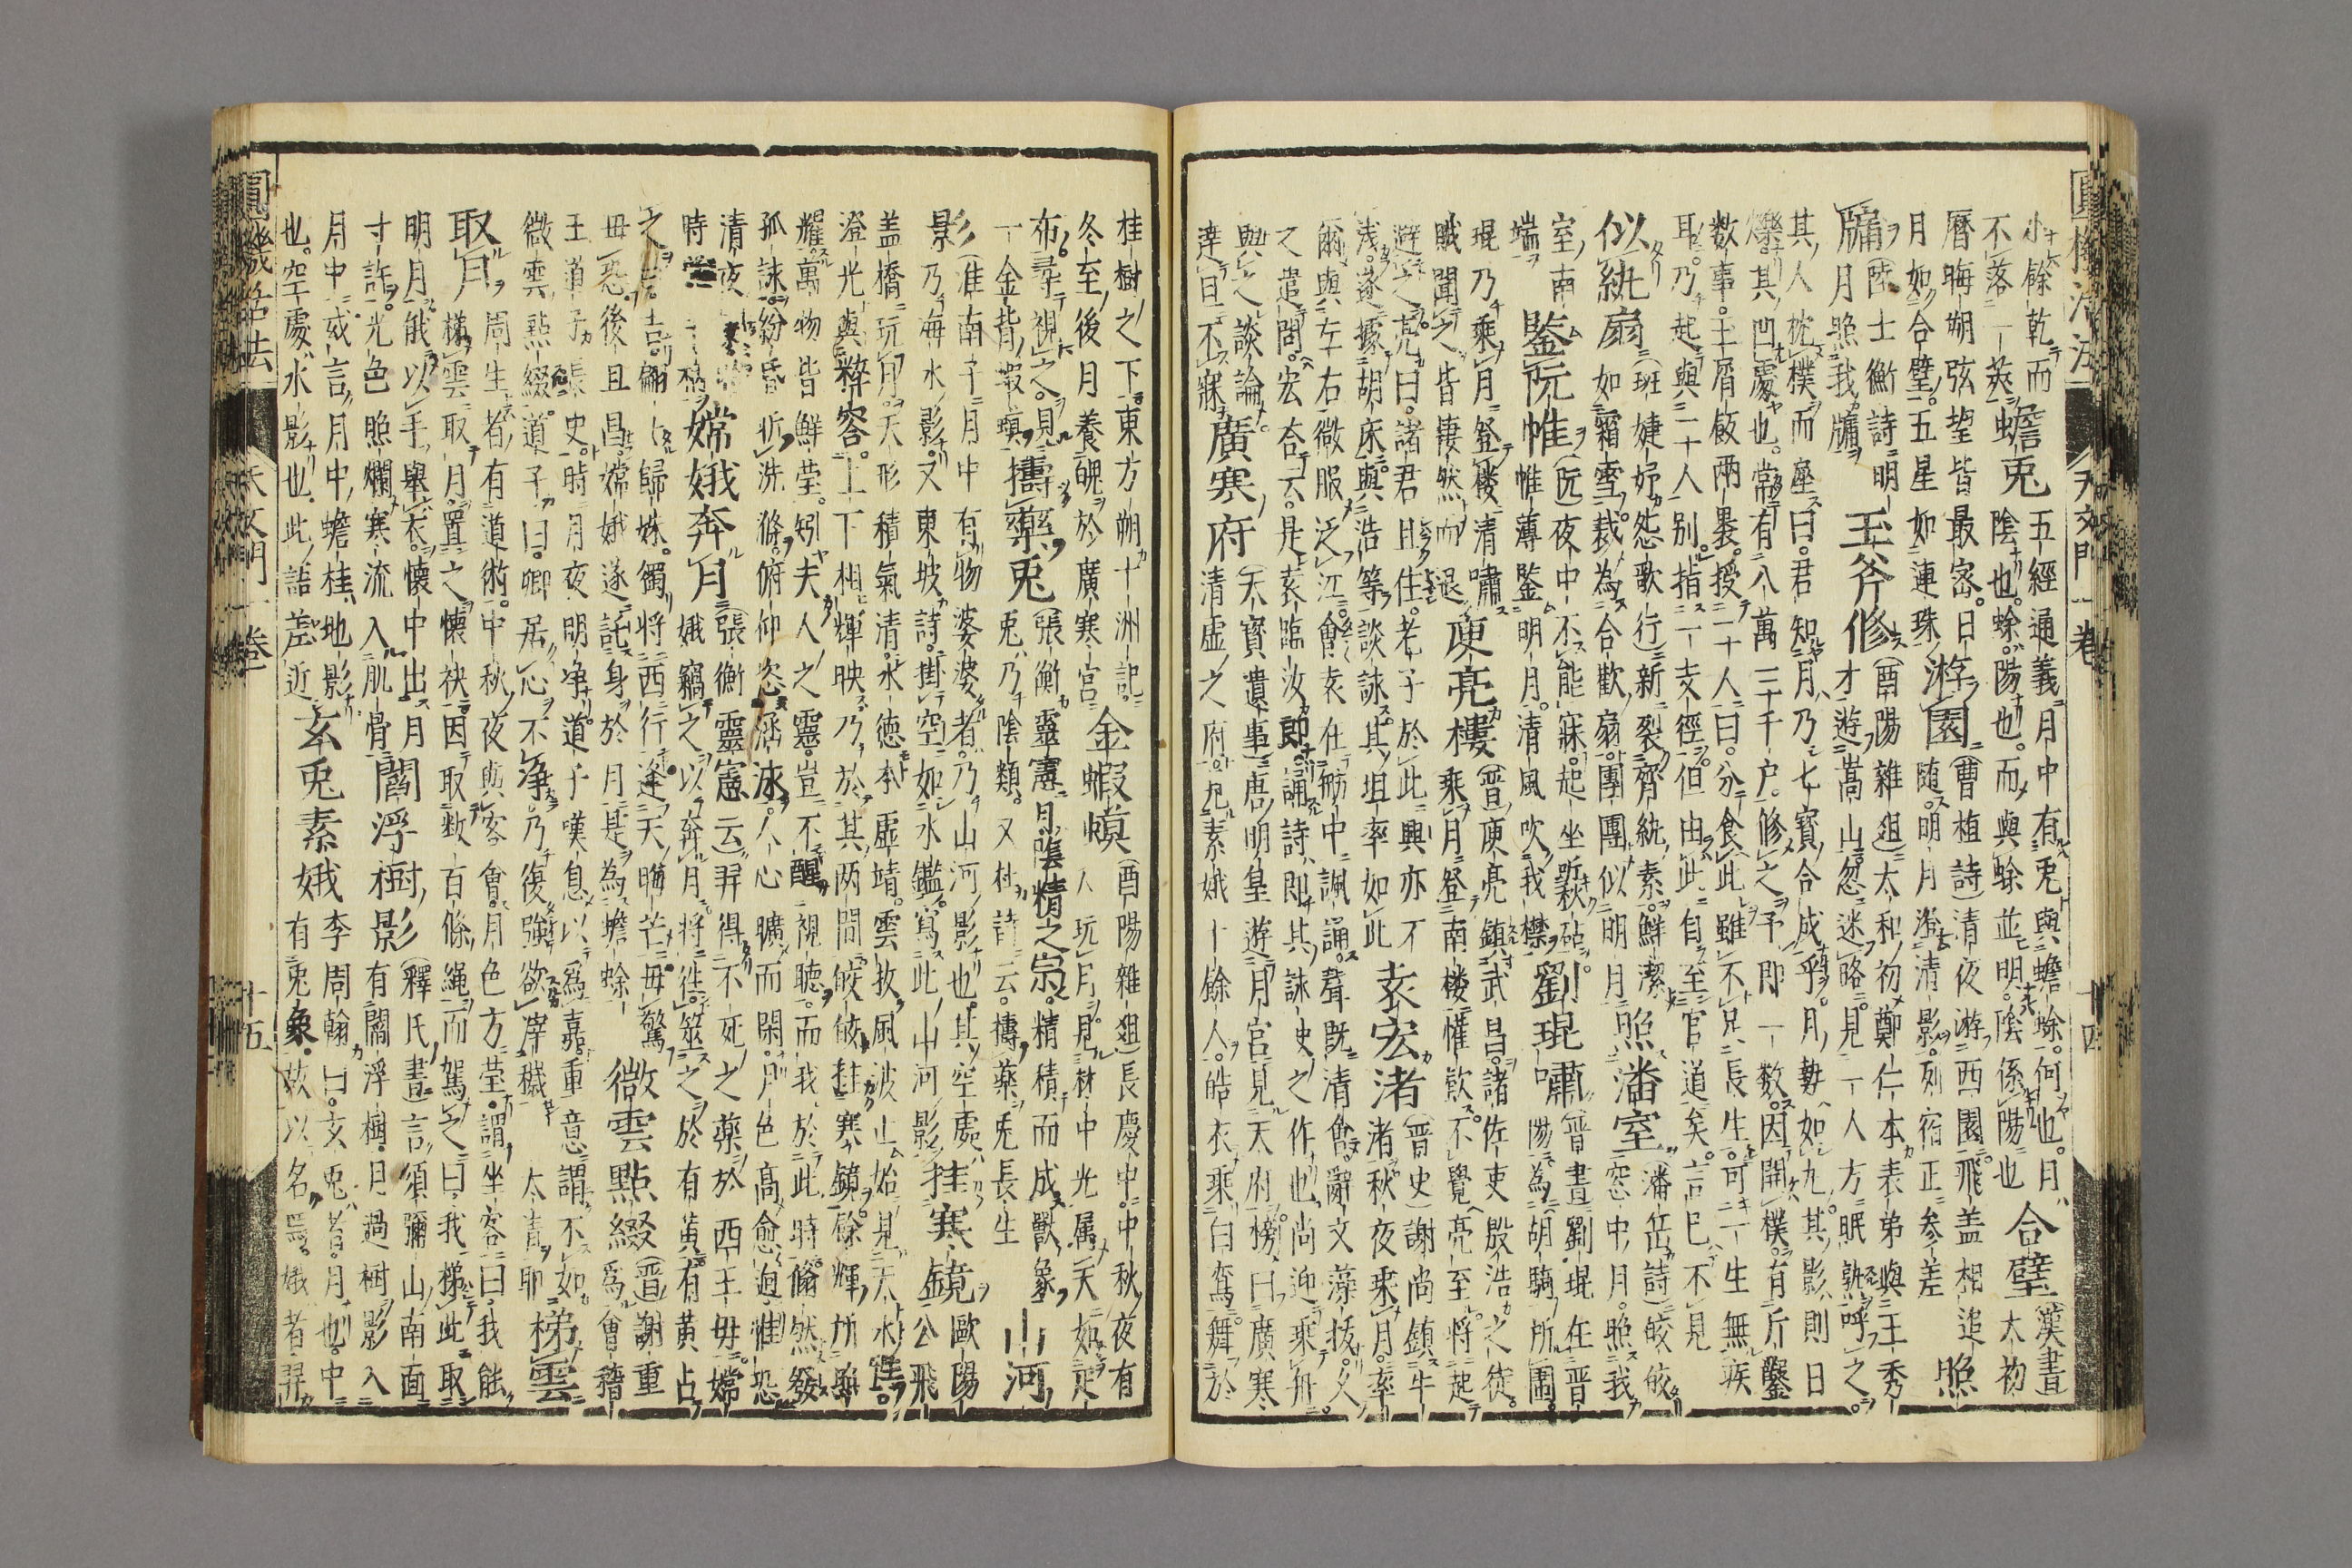 小餘乾而蟾兎五經通義月中有兎與蟾蜍何也月
不落一莢陰也蜍陽也而與蜍並明陰係陽也合璧漢書太初
曆晦朔弦望皆最密日
月如合璧五星如連珠游園曹植詩清夜游西園飛盖相追
隨明月澄清影列宿正參差照
牖陸士衡詩明月照我牖玉斧修酉陽雜俎太和初鄭仁本表弟與王秀
才遊嵩山忽迷路見一人方眠熟呼之
其人枕樸而座曰君知月乃七寶合成乎月勢如丸其影則日
爍其凹處也常有八萬二千戶修之予即一數因開樸有斤鑿
数事玉屑飯兩裹授二十人曰分食此雖不足長生可一生無疾
耳乃起與二十人別指一支徑但由此自至官道矣言已不見
似紈扇班婕妤怨歌行新裂齊紈素鮮潔
如霜雪裁為合歡扇團團似明月照潘室潘岳詩皎皎
窓中月照我
室南
端鑒阮帷阮夜中不能寐起坐
帷薄鑒明月清風吹我襟劉琨嘯晋書劉琨在晋
陽為胡騎所圍
琨乃乘月登楼清嘯
賊聞之皆悽然而退庾亮樓晋庾亮鎮武昌諸佐吏殷浩之徒
乘月登南楼
避之亮曰諸君且住老子於此興亦不
浅遂據胡床與浩等談詠其坦率如此袁宏渚晋史謝尚鎮牛
渚秋夜乘月率
爾與左右微服泛江會袁在舫中諷誦
之遣問宏荅云是袁臨汝即誦詩即其詠史之作也尚迎乘舟
與之談論
達旦不寐廣寒府天寳遺事唐明皇遊月宮見天府榜曰廣寒
清虚之府素娥十餘人皓衣乘白鸞舞於
桂樹之下東方朔十洲記
冬至後月養魄於廣寒宮金蝦蟆酉陽雜俎長慶中中秋夜有
人玩月見林中光属天如疋
布尋視之見
一金背蝦蟆擣藥兎張衡靈憲月陰精之宗精積而成獸象
兎乃陰類又杜詩云擣藥兎長生山河
影淮南子月中有物婆娑者乃山河影也其空處
乃海水影又東坡詩掛空如水鑑寫此山河影挂寒鏡歐陽
公飛
盖橋玩月天形積氣清水德本虚靖雲收風波止始見天水性
澄光與粹容上下相輝映乃於其两間皎皎挂寒鏡餘輝所照
耀萬物皆鮮瑩矧夫人之靈豈不醒視聽而我於此時翛然發
孤詠紛昏忻洗滌俯仰恣涵泳人心曠而閑月色高愈迥惟恐
清夜
時嫦娥奔月張衡靈憲云羿得不死之藥於西王母嫦
娥竊之以奔月將往筮之於有黄有黄占
之曰吉翩翩歸妹獨將西行逢天晦芒毋驚
毋恐後且昌嫦娥遂託身於月是為蟾蜍微雲點綴晋謝重
為會稽
王道子長史時月夜明净道子嘆息以為嘉重意謂不如
微雲點綴道子曰卿居心不净乃復強欲滓穢太清耶梯雲
取月周生者有道術中秋夜與客會月色方瑩謂坐客曰我能
梯雲取月置之懷袂因取数百條繩而駕之曰我梯此取
明月俄以手舉衣懷中出月
寸許光色照爛寒流入肌骨閻浮樹影釋氏書言須彌山南面
有閻浮樹月過樹影入
月中或言月中蟾桂地影
也空處水影也此語差近玄兎素娥李周翰曰玄兎者月也中
有兎象故以名焉娥者羿
圓機活法 天文門一巻 十四
圓機活法 天文門一巻 十五